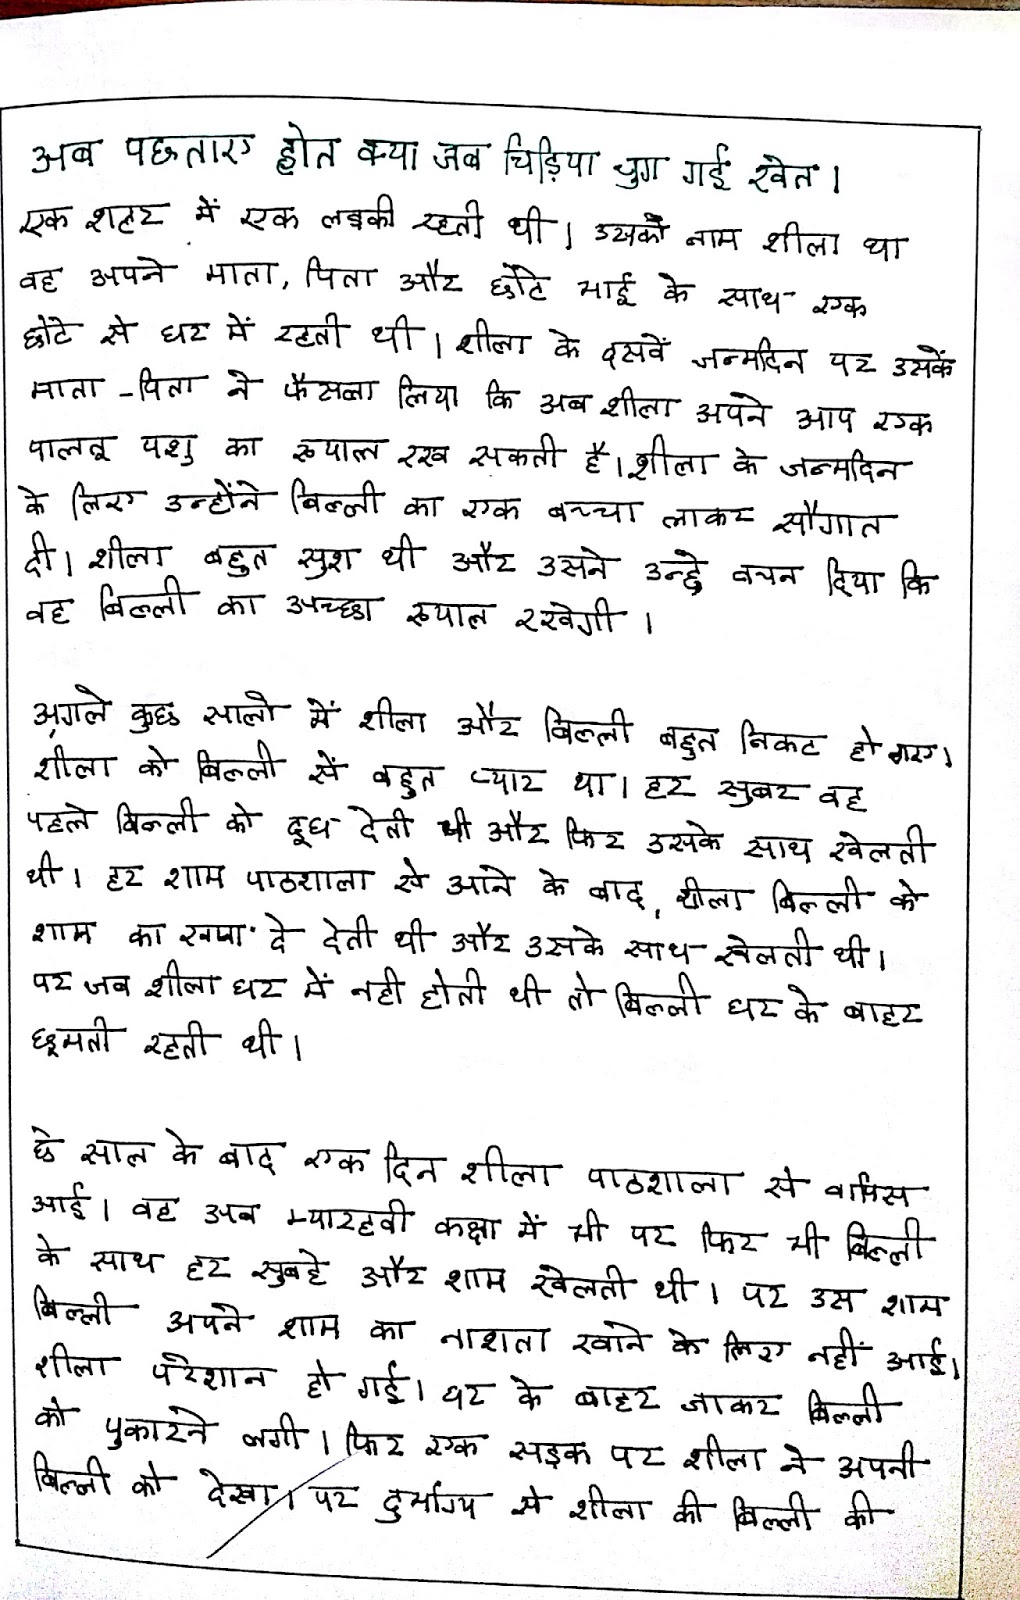 अब पछताए होत क्या जब चिड़िया चुग गई खेत।
एक शहर में एक लड़की रहती थी। उसको नाम शीला था
वह अपने माता, पिता और छोटे भाई के साथ एक
छोटे से घर में रहती थी। शीला के दसवें जन्मदिन पर उसकें
माता-पिता ने फैसला लिया कि अब शीला अपने आप एक
पालतू पशु का ख्याल रख सकती है। शीला के जन्मदिन
के लिए उन्होंने बिल्ली का एक बच्चा लाकर सौगात
दी। शीला बहुत खुश थी और उसने उन्हे वचन दिया कि
वह बिल्ली का अच्छा ख्याल रखेगी।
अगले कुछ सालो में शीला और बिल्ली बहुत निकट हो गए।
शीला को बिल्ली सें बहुत प्यार था। हर सुबर वह
पहले बिल्ली को दूध देती थी और फिर उसके साथ खेलती
थी। हर शाम पाठशाला से आने के बाद, शीला बिल्ली को
शाम का खाना दे देती थी और उसके साथ खेलती थी।
पर जब शीला घर में नही होती थी तो बिल्ली घर के बाहर
घूमती रहती थी।
छे साल के बाद एक दिन शीला पाठशाला से वापिस
आई। वह अब ग्यारहवी कक्षा में थी पर फिर भी बिल्ली
के साथ हर सुबहे और शाम खेलती थी। पर उस शाम
बिल्ली अपने शाम का नाशता खाने के लिए नहीं आई।
शीला परेशान हो गई। घर के बाहर जाकर बिल्ली
को पुकारने लगी। फिर एक सड़क पर शीला ने अपनी
बिल्ली को देखा। पर दुर्भाग्य से शीला की बिल्ली की